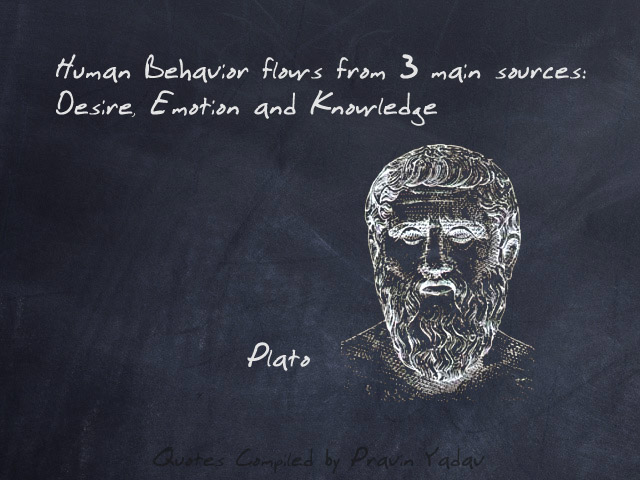 Human Behavior flows from 3 main sources:
Desire, Emotion and Knowledge
Plato
Quotes Compiled by Pravin Yadav